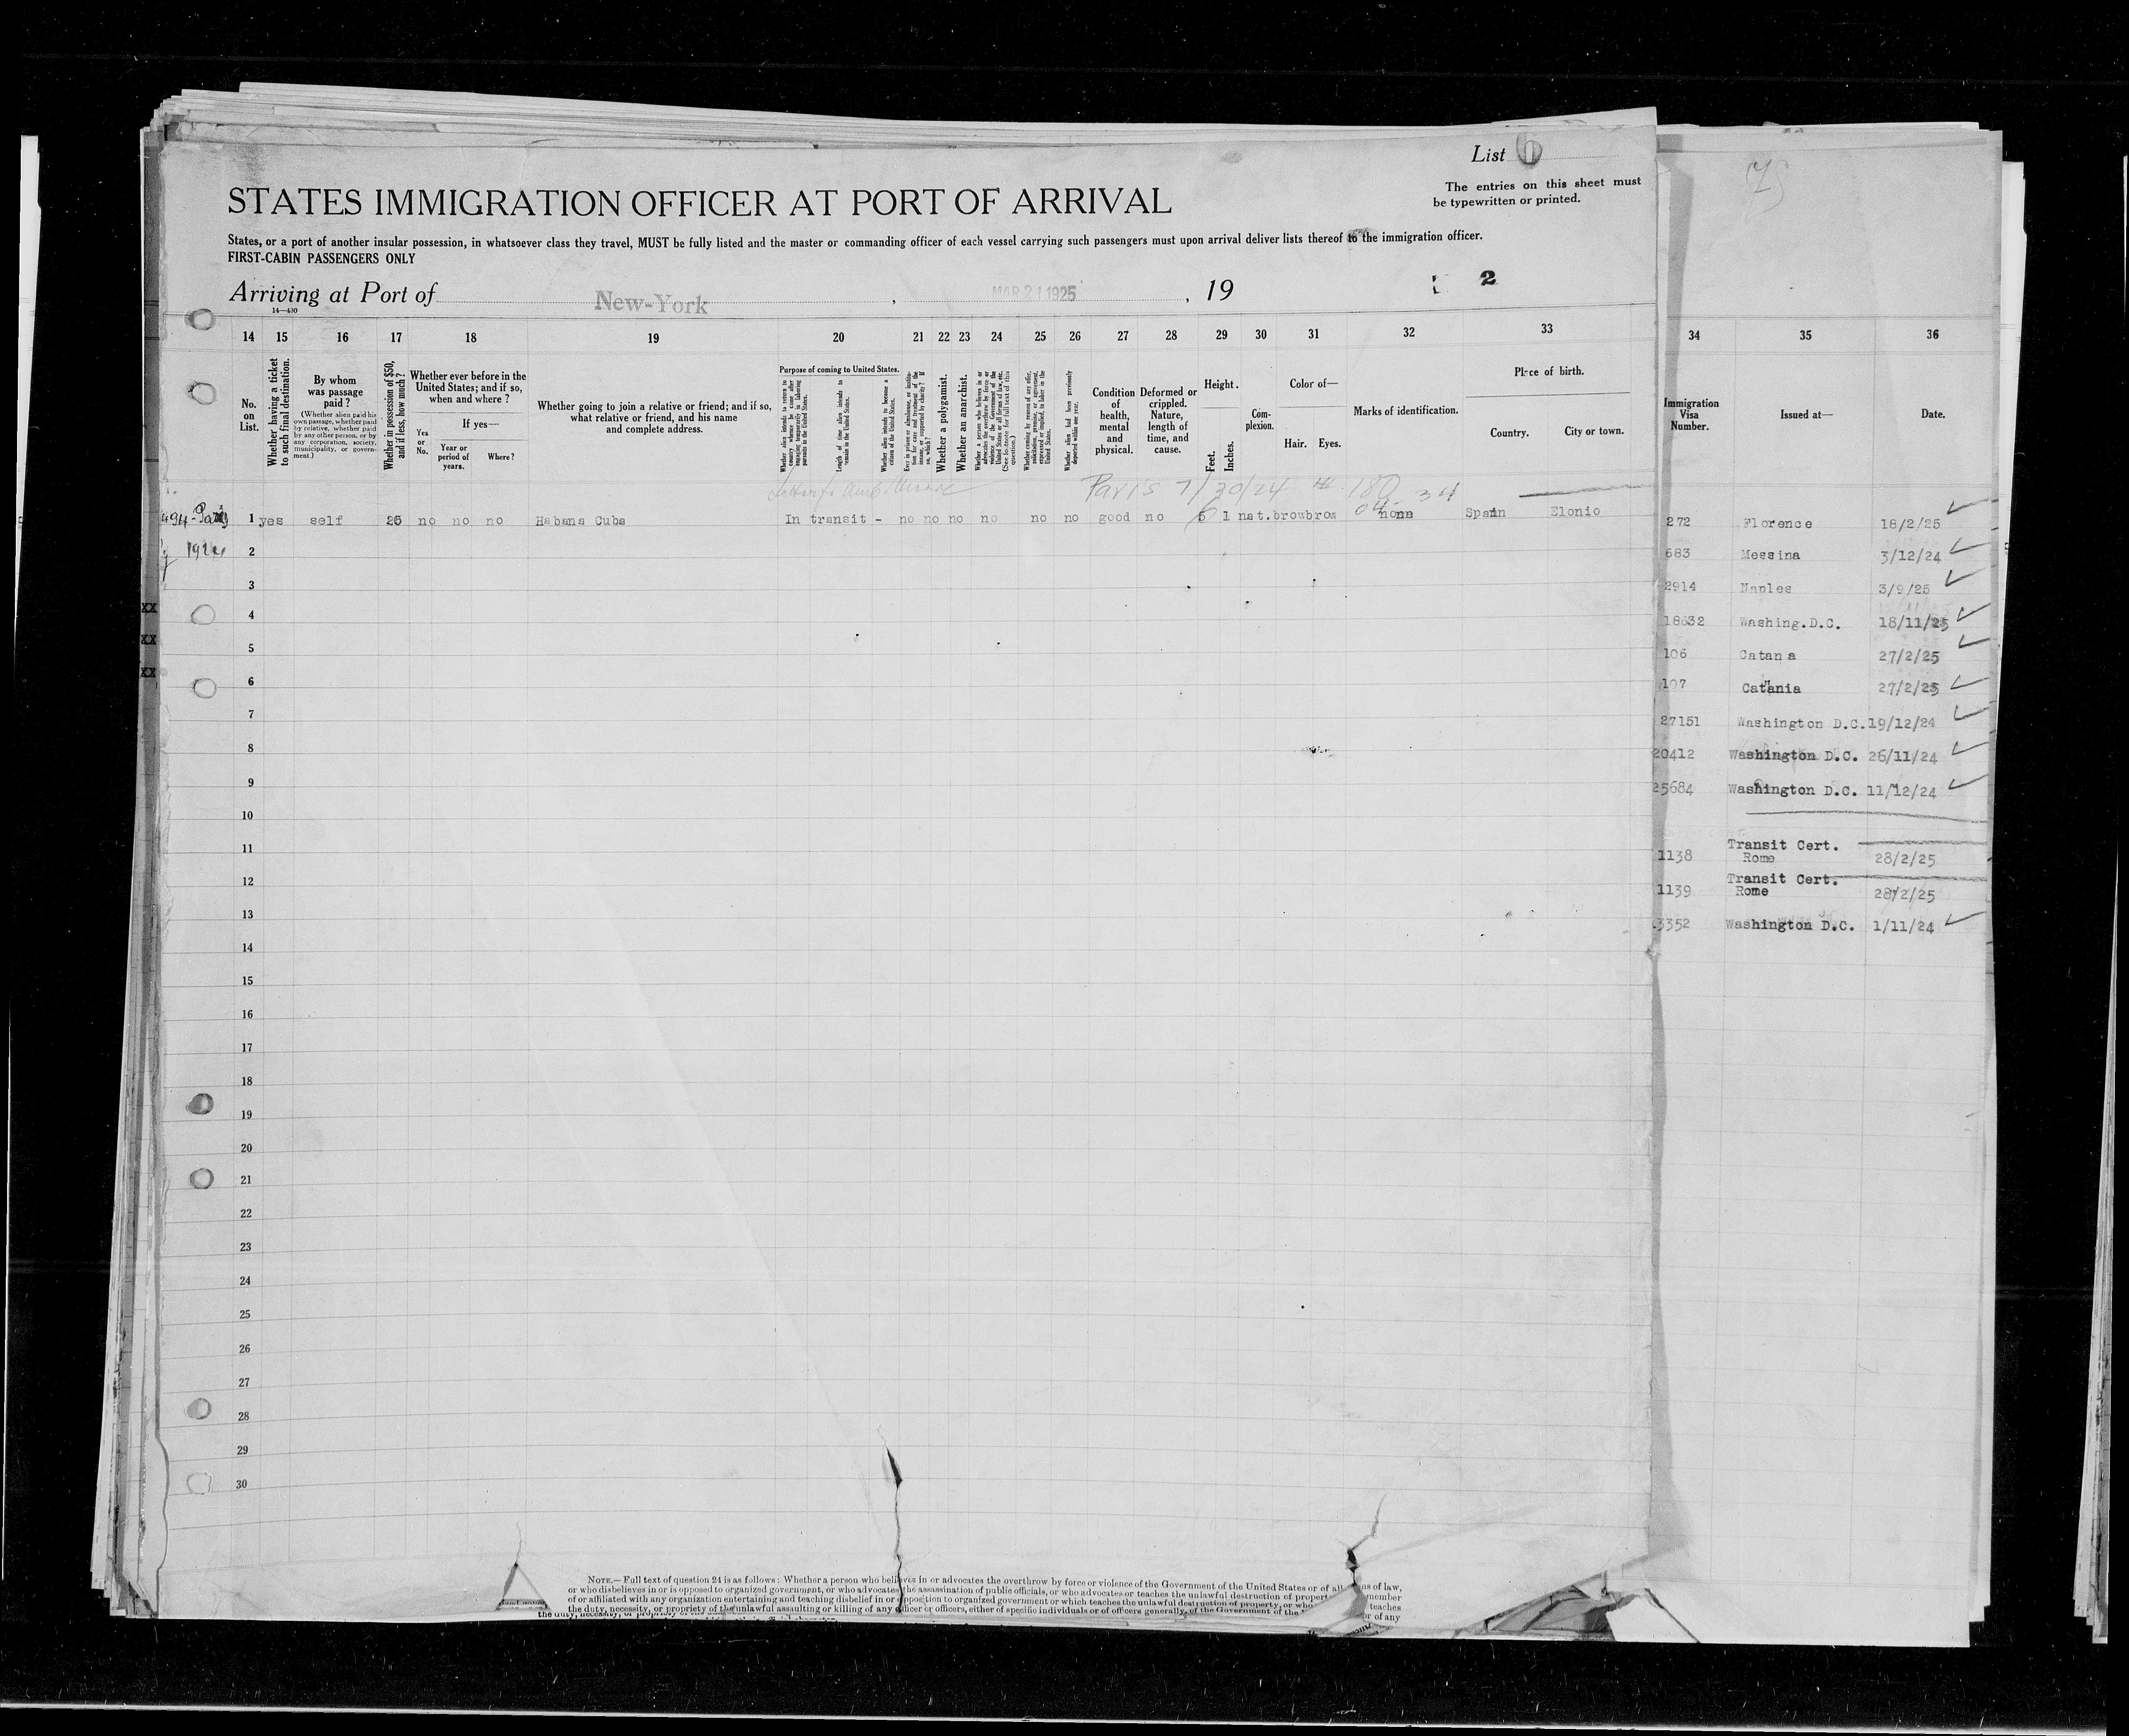 List 6
The entries on this sheet must
be typewritten or printed.
STATES IMMIGRATION OFFICER AT PORT OF ARRIVAL
States, or a port of another insular possession, in whatsoever class they travel, MUST be fully listed and the master or commanding officer of each vessel carrying such passengers must upon arrival deliver lists thereof to the immigration officer.
FIRST-CABIN PASSENGERS ONLY
Arriving at Port of New-York, MAR 21 1925, 19
2
14—430
14 15 16 17 18 19 20 21 22 23 24 25 26 27 28 29 30 31 32 33 34 35 36
No. on List.
Whether having a ticket to such final destination.
By whom was passage paid?
(Whether alien paid his own passage, whether paid by relative, whether paid by any other person, or by any corporation, society, municipality, or government.)
Whether in possession of $50, and if less, how much?
Whether ever before in the United States; and if so, when and where?
If yes—
Yes or No.
Year or period of years.
Where?
Whether going to join a relative or friend; and if so, what relative or friend, and his name and complete address.
Purpose of coming to United States.
Whether alien intends to return to country whence he came after engaging temporarily in laboring pursuits in the United States.
Length of time alien intends to remain in the United States.
Whether alien intends to become a citizen of the United States.
Ever in prison or almshouse, or institution for care and treatment of the insane, or supported by charity? If so, which?
Whether a polygamist.
Whether an anarchist.
Condition of health, mental and physical.
Deformed or crippled. Nature, length of time, and cause.
Height.
Feet. Inches.
Complexion.
Color of—
Hair. Eyes.
Marks of identification.
Place of birth.
Country. City or town.
Immigration Visa Number.
Issued at—
Date.
Paris 7/30/24 # 180 34
494-Paris 1 yes self 25 no no no Habana Cuba In transit - no no no no no no good no 5 1 nat. brow brow none Spain Elonio
1924
272 Florence 18/2/25
683 Messina 3/12/24
2914 Naples 3/9/25
18632 Washing.D.C. 18/11/25
106 Catana 27/2/25
107 Catania 27/2/25
27151 Washington D.C. 19/12/24
20412 Washington D.C. 26/11/24
25684 Washington D.C. 11/12/24
Transit Cert.
1138 Rome 28/2/25
Transit Cert.
1139 Rome 28/2/25
3352 Washington D.C. 1/11/24
XX
XX
XX
2
3
4
5
6
7
8
9
10
11
12
13
14
15
16
17
18
19
20
21
22
23
24
25
26
27
28
29
30
NOTE.—Full text of question 24 is as follows: Whether a person who believes in or advocates the overthrow by force or violence of the Government of the United States or of all of law,
or who disbelieves in or is opposed to organized government, or who advocates the assassination of public officials, or who advocates or teaches the unlawful destruction of property member
of or affiliated with any organization entertaining and teaching disbelief in or opposition to organized government or which teaches the unlawful destruction of property, or who teaches
the duty, necessity, or propriety of the unlawful assaulting or killing of any officer or officers, either of specific individuals or of officers generally, of the Government of the or of any